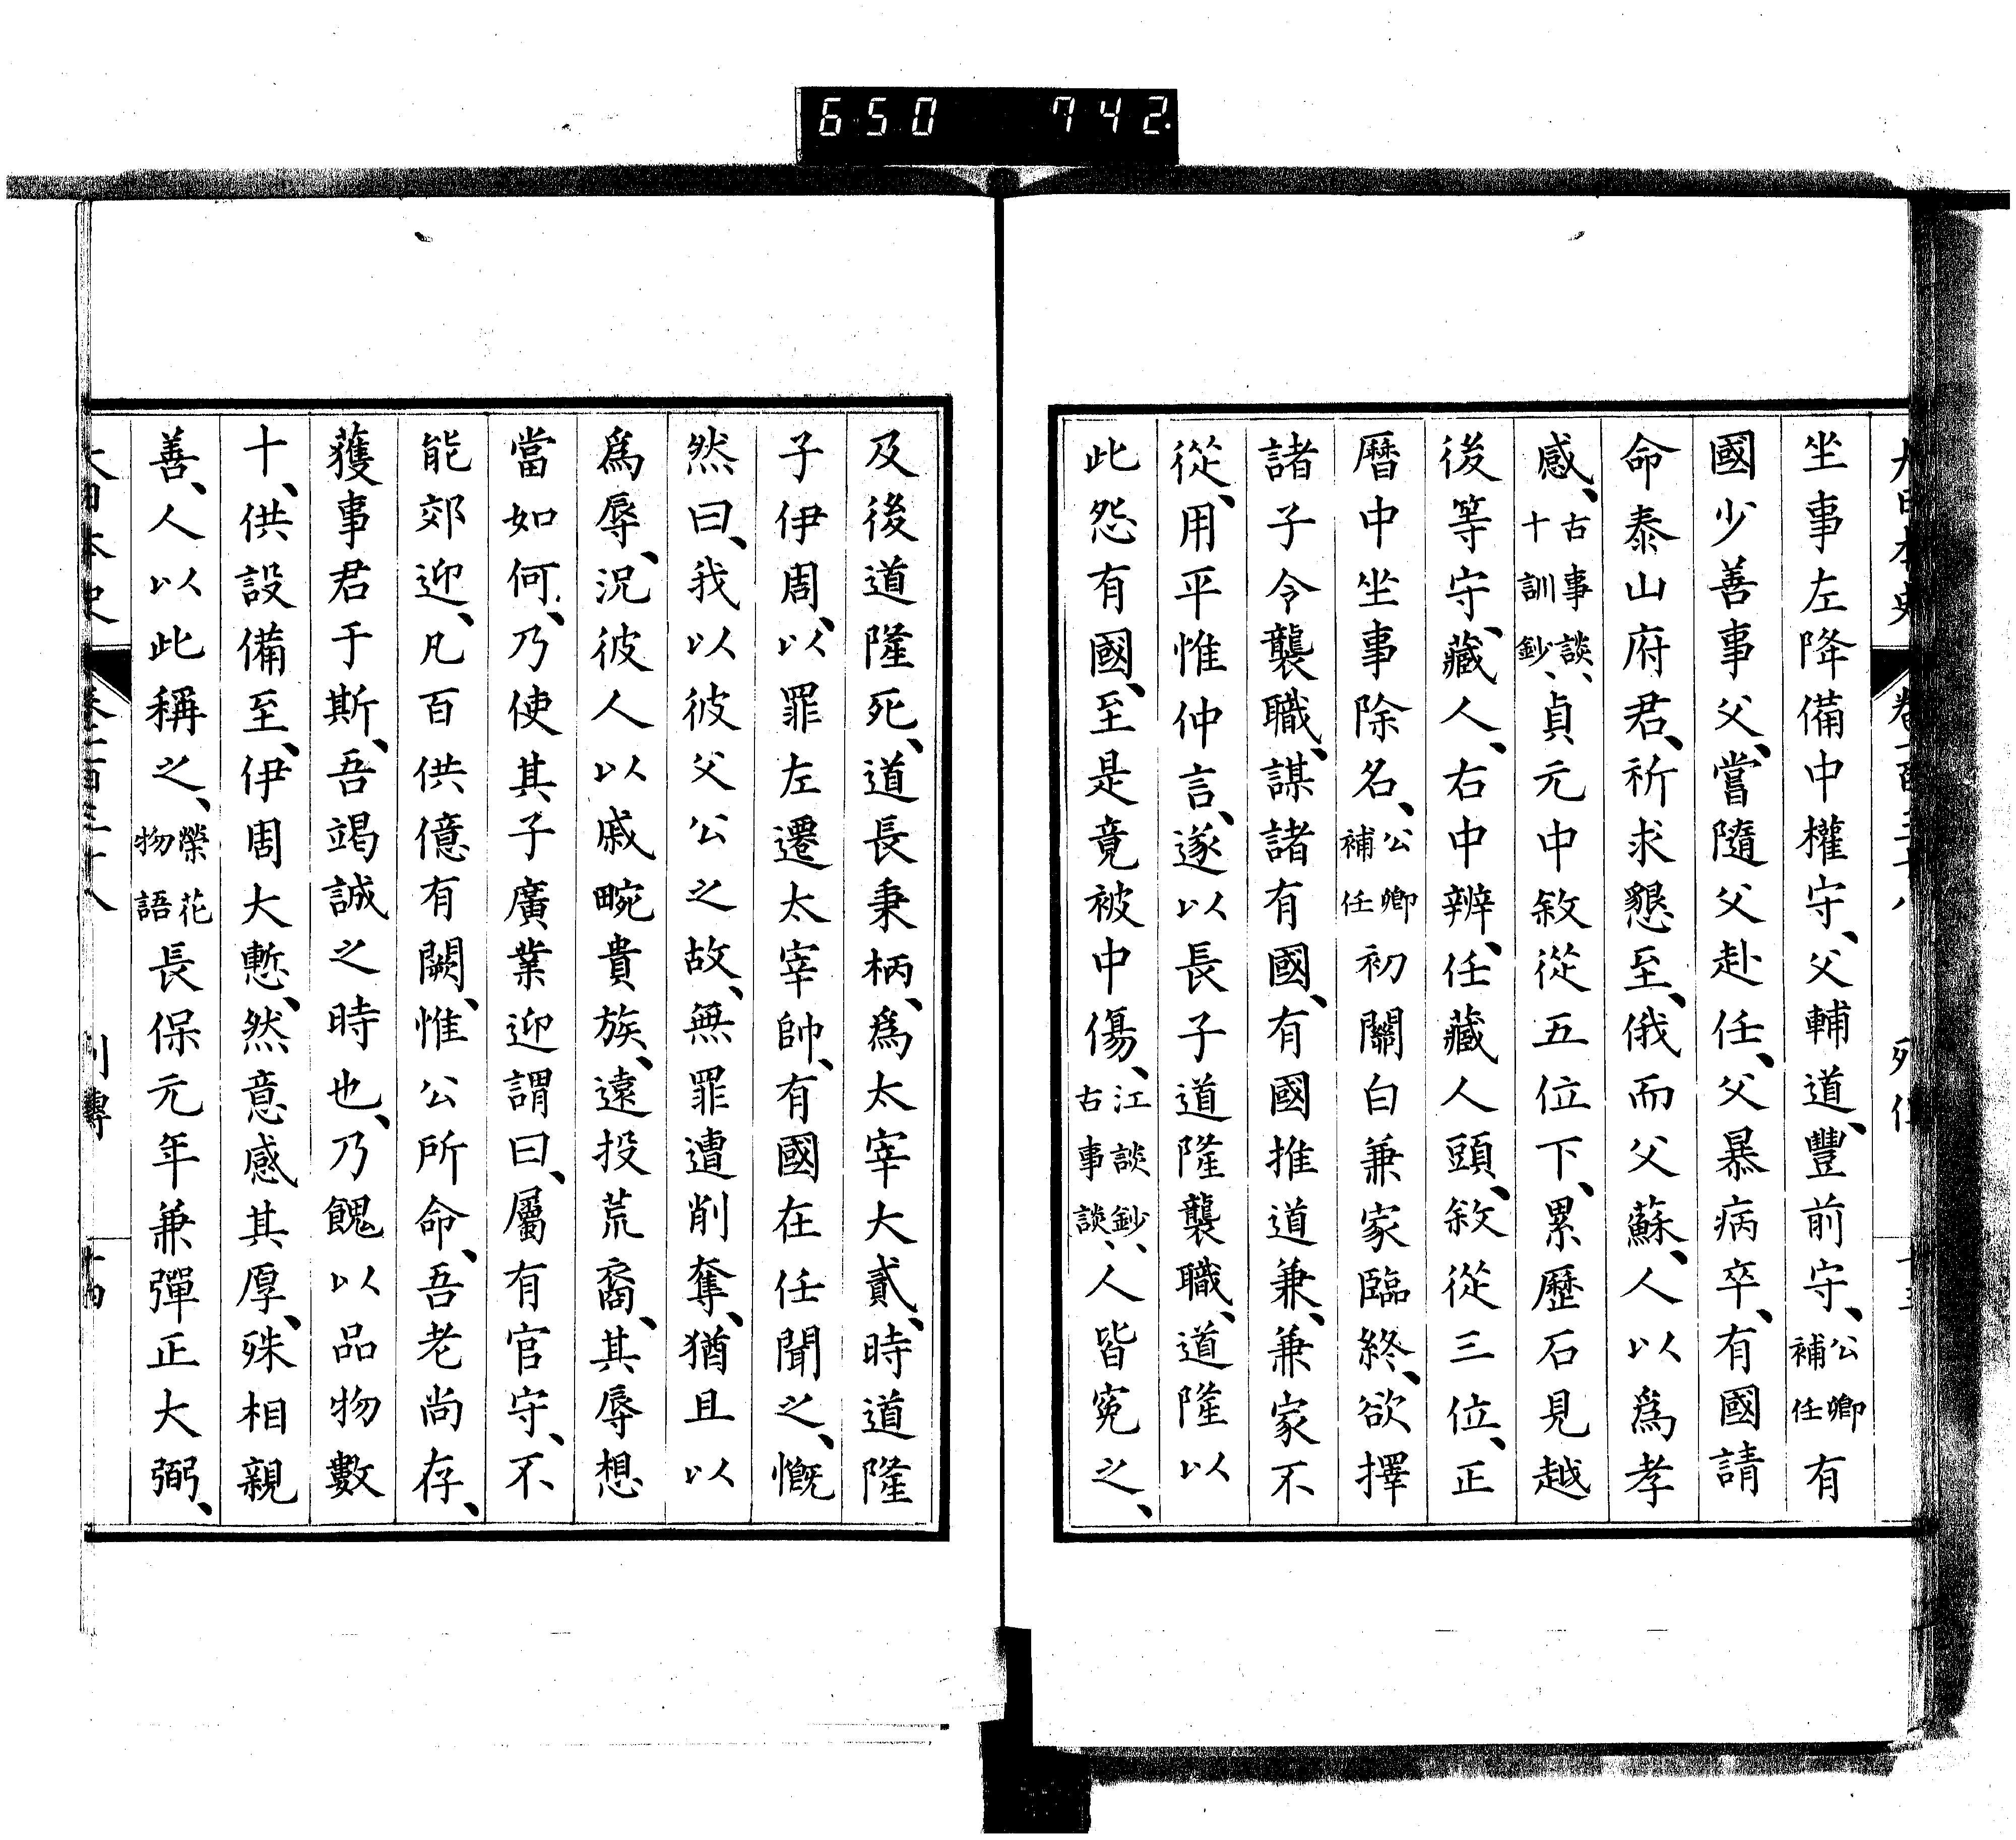 650 742.
坐事左降備中權守、父輔道、豐前守、公卿補任有
國少善事父、嘗隨父赴任、父暴病卒、有國請
命泰山府君、祈求懇至、俄而父蘇、人以爲孝
感、古事談、十訓鈔、貞元中敘從五位下、累歷石見越
後等守、藏人、右中辨、任藏人頭、敘從三位、正
曆中坐事除名、公卿補任初關白兼家臨終、欲擇
諸子令襲職、謀諸有國、有國推道兼、兼家不
從、用平惟仲言、遂以長子道隆襲職、道隆以
此怨有國、至是竟被中傷、江談鈔、古事談、人皆寃之、
及後道隆死、道長秉柄、爲太宰大貳、時道隆
子伊周、以罪左遷太宰帥、有國在任聞之、慨
然曰、我以彼父公之故、無罪遭削奪、猶且以
爲辱、況彼人以戚畹貴族、遠投荒裔、其辱想
當如何、乃使其子廣業迎謂曰、屬有官守、不
能郊迎、凡百供億有闕、惟公所命、吾老尚存、
獲事君于斯、吾竭誠之時也、乃餽以品物數
十、供設備至、伊周大慙、然意感其厚、殊相親
善、人以此稱之、榮花物語長保元年兼彈正大弼、
大日本史 卷一百三十八 列傳